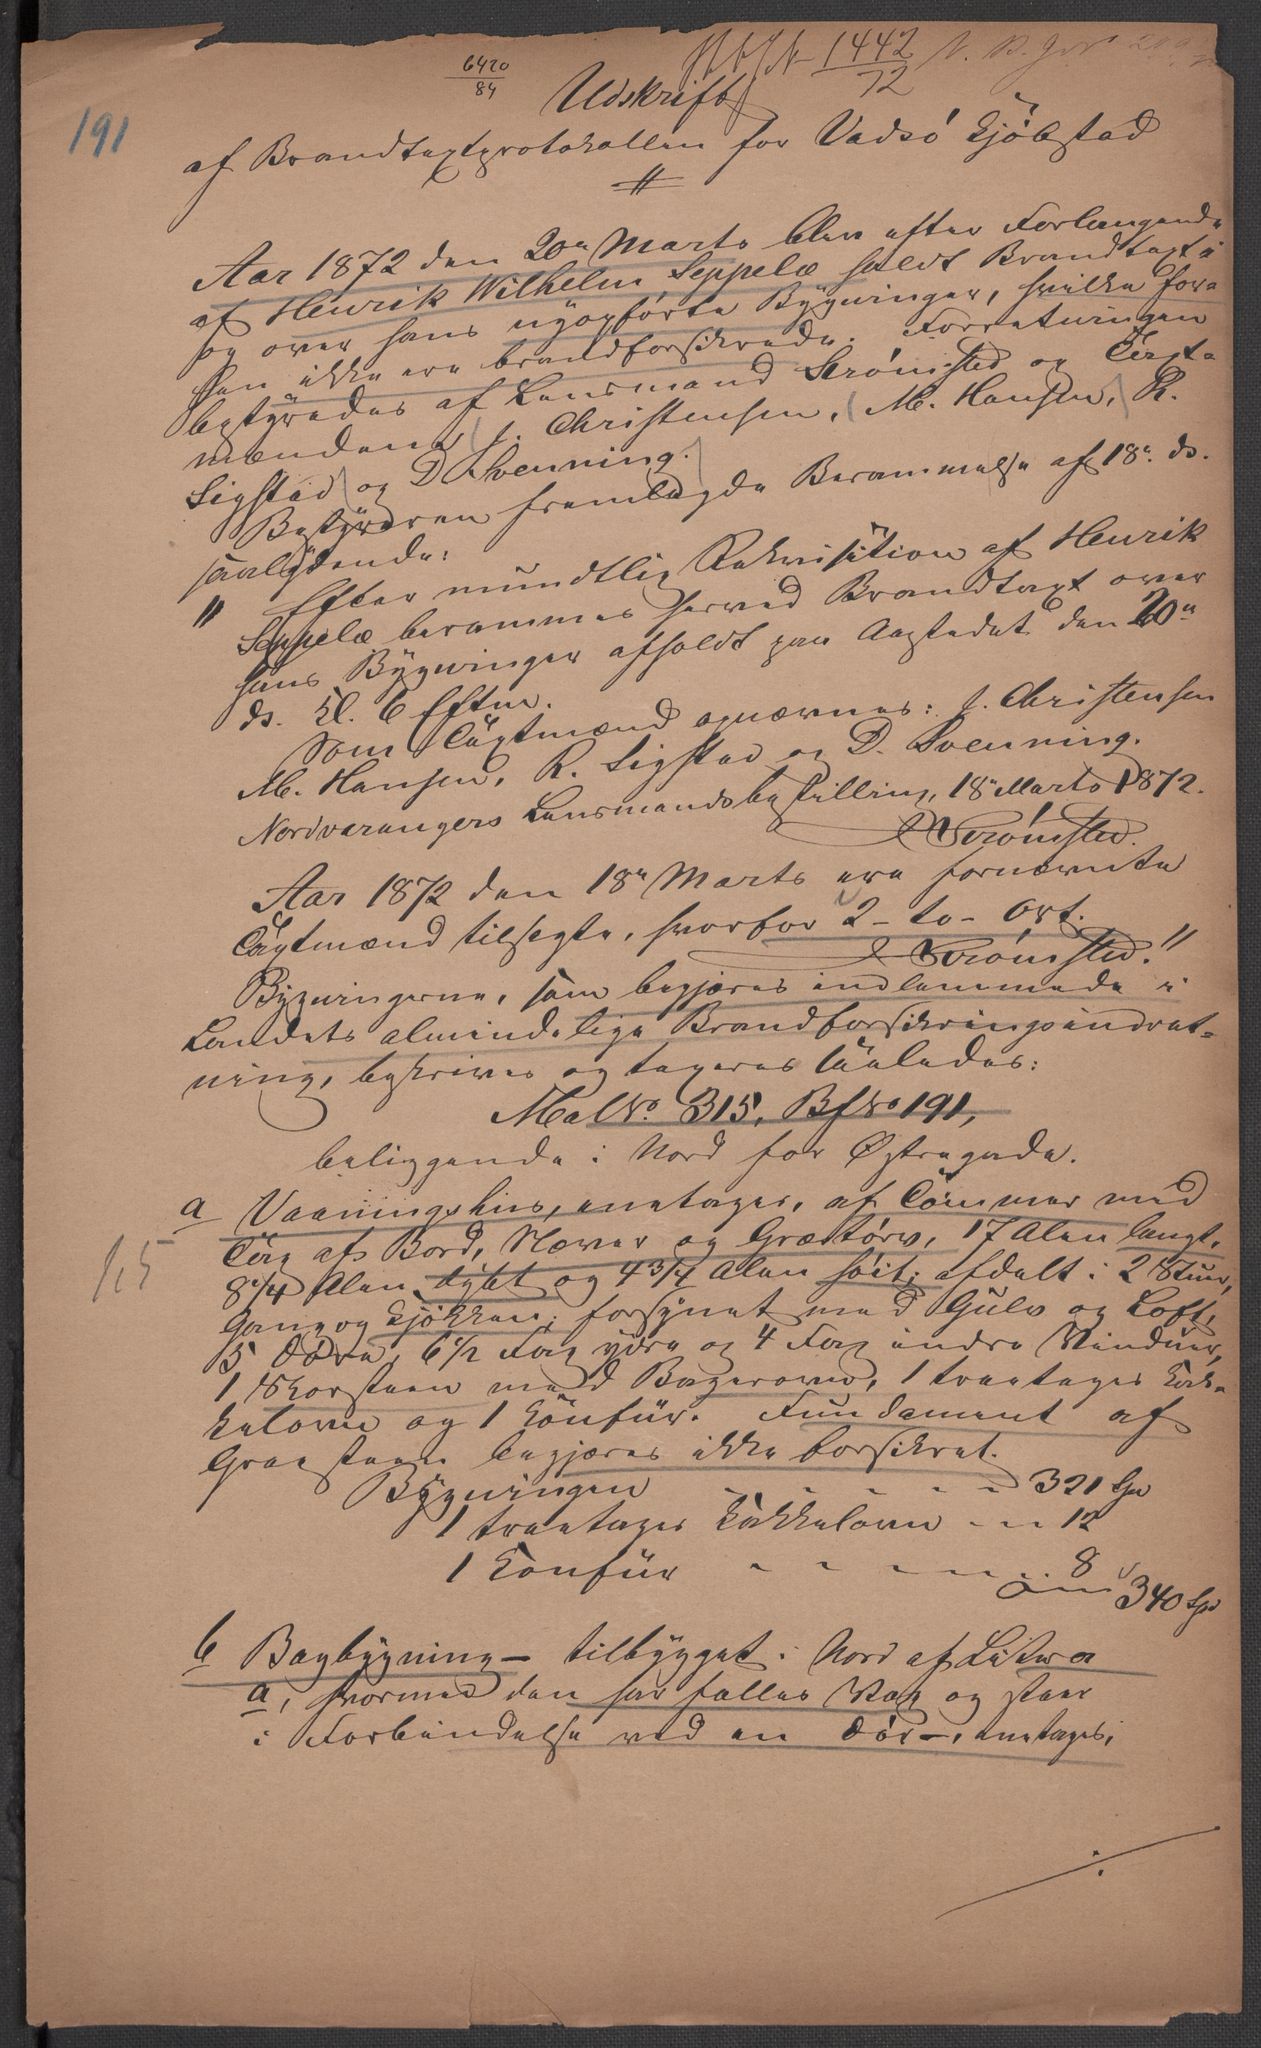 6420
84
1442
72
191
Udskrift
af Brandtaxtprotokollen for Vadsö Kjöbstad
Aar 1872 den 20de Marts blev efter Forlangende
af Henrik Wilhelm Seppelæ holdt Brandtaxt i
og over hans nyopførte Bygninger, hvilke for-
hen ikke ere brandforsikrede. Forretningen
bestyredes af Lensmand Strömsted og Taxt-
mændene J. Christensen, M. Hansen, R.
Sigstad og D. Svenning.
Bestyreren fremlagde Berammelse af 18de ds.
saalydende:
" Efter mundtlig Rekvisition af Henrik
Seppelæ berammes herved Brandtaxt over
hans Bygninger afholdt paa Aastedet den 20de
ds. Kl. 6 Eftm.
Som Taxtmænd opnævnes: J. Christensen
M. Hansen, R. Sigstad og D. Svenning.
Nordvarangers Lensmandsbestilling, 18de Marts 1872.
Strömsted.
Aar 1872 den 18de Marts ere fornævnte
Taxtmænd tilsagte, hvorfor 2 - to - Ort.
Strömsted."
Bygningerne, som begjæres indlemmede i
Landets almindelige Brandforsikringsindret-
ning, beskrives og taxeres saaledes:
Mal No. 315, Bf No 191,
beliggende i Nord for Østregade.
a Vaaningshus, enetages, af Tömmer med
Tag af Bord, Næver og Græstörv, 17 Alen langt,
8 3/4 Alen dybt og 4 3/4 Alen höit; afdelt i 2 Stuer,
Gang og Kjökken; forsynet med Gulv og Loft,
5 Döre, 6 1/2 Fag ydre og 4 Fag indre Vinduer,
1 Skorsteen med Bagerovn, 1 treetages Kak-
kelovn og 1 Komfür. Fundament af
Graasteen begjæres ikke forsikret.
Bygningen 321 Spd
1 treetages Kakkelovn 12
1 Komfür 8
340 Spd
b Bagbygning - tilbygget i Nord af Litra
a, hvormed den har fælles Væg og staar
i Forbindelse ved en Dör -, enetages,